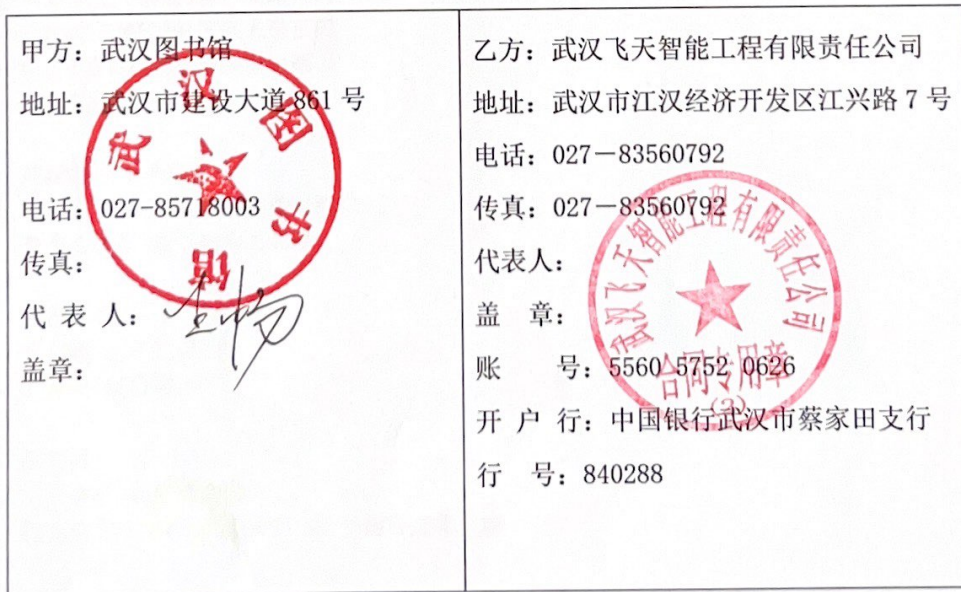 甲方：武汉图书馆
地址：武汉市建设大道 861 号
电话：027-85718003
传真：
代 表 人：
盖章：
武汉图书馆
乙方：武汉飞天智能工程有限责任公司
地址：武汉市江汉经济开发区江兴路 7 号
电话：027－83560792
传真：027－83560792
代表人：
盖 章：
账 号：5560 5752 0626
开 户 行：中国银行武汉市蔡家田支行
行 号：840288
武汉飞天智能工程有限责任公司
合同专用章
(3)